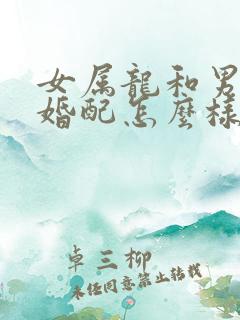 女属龍和男
婚配怎麼樣
卓三柳
未經同意禁止转载